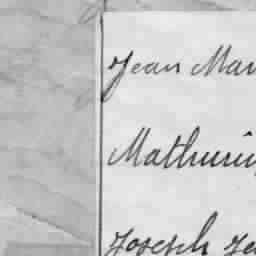 Jean Mar
Mathurin
Joseph Je